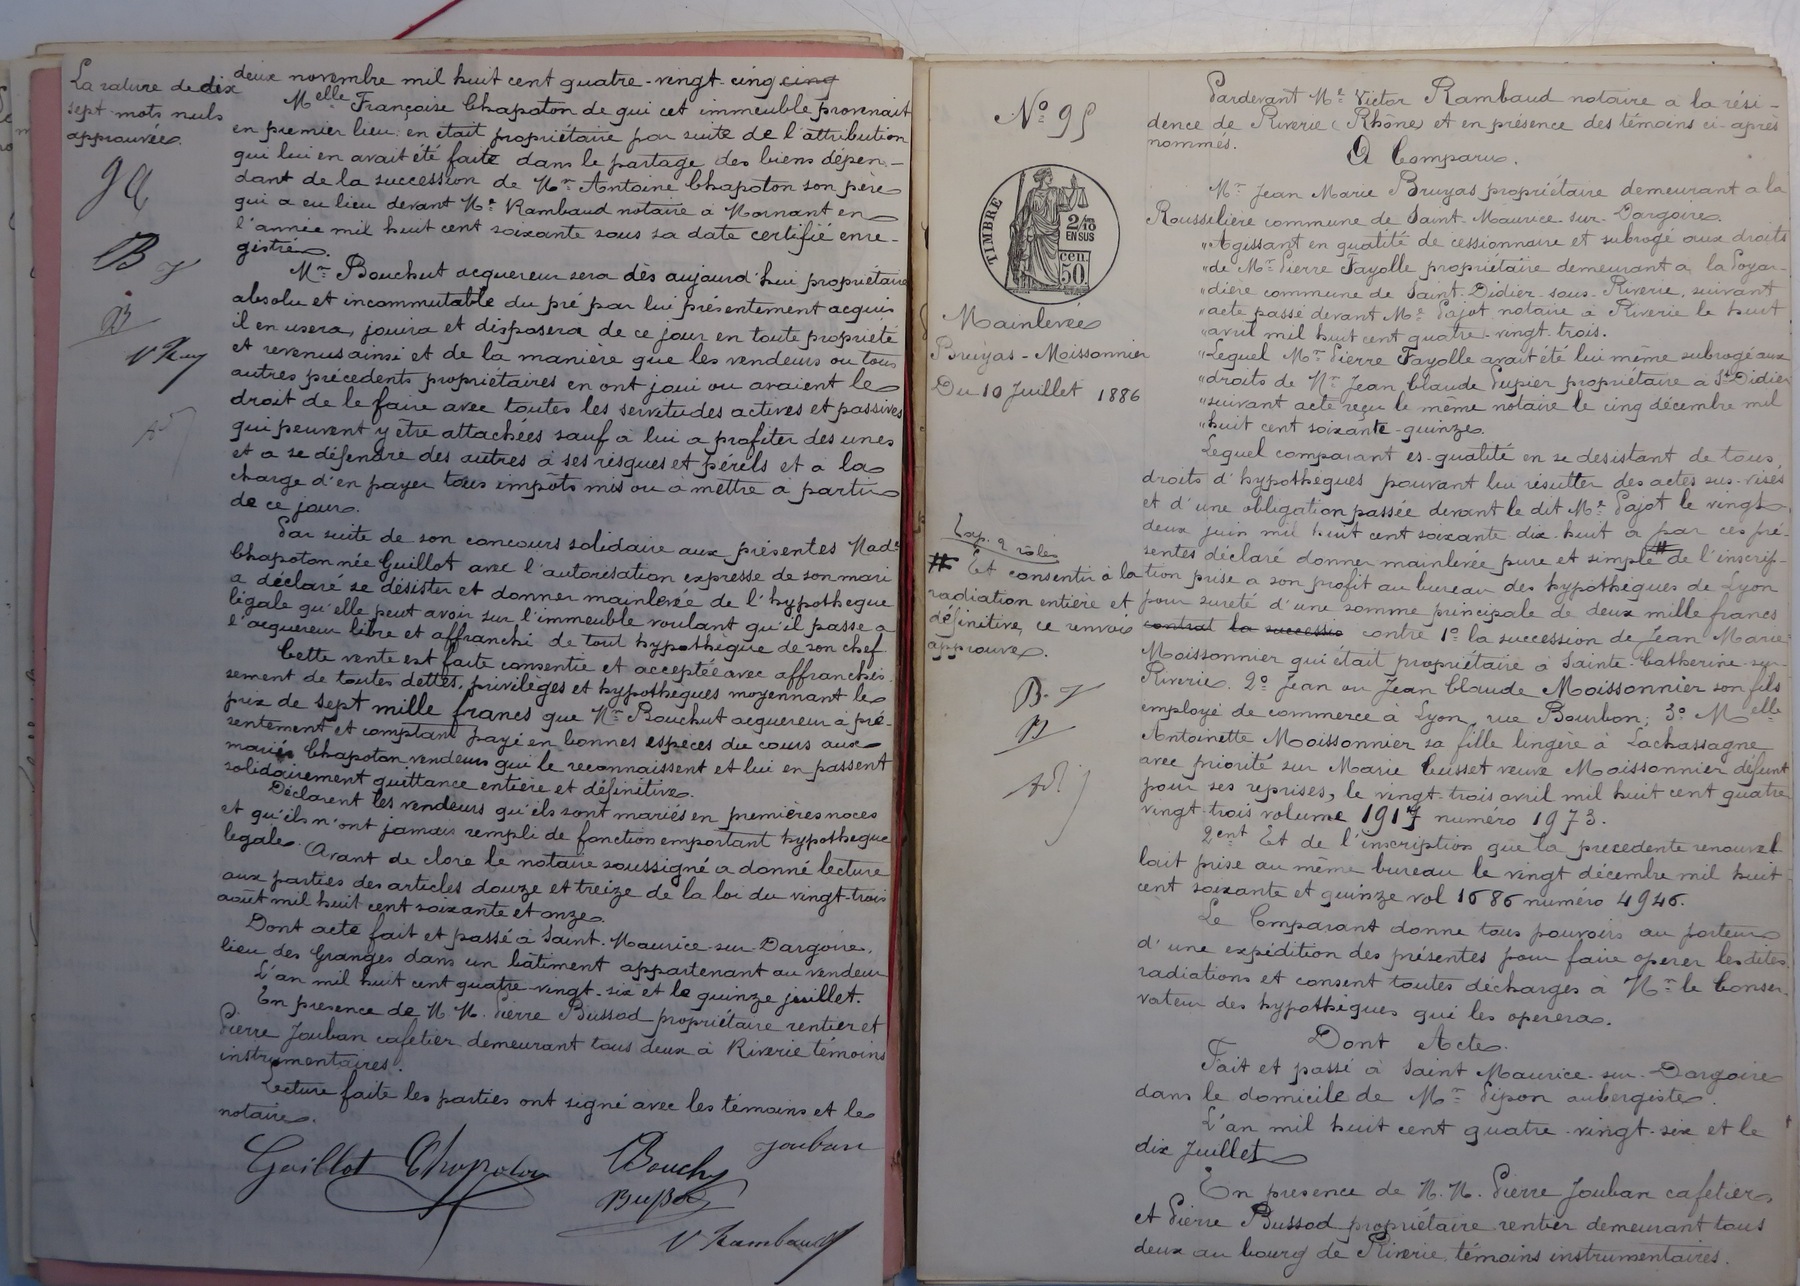 La rature de dix
sept mots nuls
approuvée.
deux novembre mil huit cent quatre-vingt-cinq cinq
Melle Françoise Chapoton de qui cet immeuble provenait
en premier lieu en était propriétaire par suite de l'attribution
qui lui en avait été faite dans le partage des biens dépen-
dant de la succession de Mr Antoine Chapoton son père
qui a eu lieu devant Me Rambaud notaire à Mornant en
l'année mil huit cent soixante sous sa date certifié enre-
gistré.
Mr Bouchut acquereur sera dès aujourd'hui propriétaire
absolu et incommutable du pré par lui présentement acquis
il en usera, jouira et disposera de ce jour en toute propriété
et revenus ainsi et de la manière que les vendeurs ou tous
autres précédents propriétaires en ont joui ou avaient le
droit de le faire avec toutes les servitudes actives et passives
qui peuvent y être attachées sauf à lui a profiter des unes
et a se défendre des autres à ses risques et périls et à la
charge d'en payer tous impôts mis ou à mettre à partir
de ce jour.
Par suite de son concours solidaire aux présentes Made
Chapoton née Guillot avec l'autorisation expresse de son mari
a déclaré se désister et donner mainlevée de l'hypothèque
légale qu'elle peut avoir sur l'immeuble voulant qu'il passe a
l'acquereur libre et affranchi de tout hypothèque de son chef.
Cette vente est faite consentie et acceptée avec affranchis-
sement de toutes dettes, privilèges et hypothèques moyennant le
prix de sept mille francs que Mr Bouchut acquereur à pré-
sentement et comptant payé en bonnes espèces du cours aux
mariés Chapoton vendeurs qui le reconnaissent et lui en passent
solidairement quittance entière et définitive.
Déclarent les vendeurs qu'ils sont mariés en premières noces
et qu'ils n'ont jamais rempli de fonction emportant hypothèque
légale. Avant de clore le notaire soussigné a donné lecture
aux parties des articles douze et treize de la loi du vingt-trois
août mil huit cent soixante et onze.
Dont acte fait et passé à Saint-Maurice-sur-Dargoire,
lieu des Granges dans un bâtiment appartenant au vendeur
L'an mil huit cent quatre-vingt-six et le quinze juillet.
En presence de M. M. Pierre Bussod propriétaire rentier et
Pierre Jouban cafetier demeurant tous deux à Riverie témoins
instrumentaires.
Lecture faite les parties ont signé avec les témoins et le
notaire.
Jouban
Guillot Chapoton Bouchu
Bussod
V Rambaud
No 95
TIMBRE
2/10
EN SUS
cen.
50
Mainlevée
Bruyas - Moissonnier
Du 10 Juillet 1886
Exp. 2 rôles
# Et consentir à la
radiation entière et
définitive, ce renvoi
approuvé.
Pardevant Me Victor Rambaud notaire a la rési-
dence de Riverie (Rhône) et en présence des témoins ci-après
nommés.
A Comparu.
Mr Jean Marie Bruyas propriétaire demeurant a la
Rousselière commune de Saint-Maurice-sur-Dargoire.
"Agissant en qualité de cessionnaire et subrogé aux droits
"de Mr Pierre Fayolle propriétaire demeurant a la Poyar-
"dière commune de Saint-Didier-sous-Riverie, suivant
"acte passé devant Me Pajot notaire à Riverie le huit
"avril mil huit cent quatre-vingt-trois.
"Lequel Mr Pierre Fayolle avait été lui même subrogé aux
"droits de Mr Jean Claude Pupier propriétaire à St Didier
"suivant acte reçu le même notaire le cinq décembre mil
"huit cent soixante-quinze.
Lequel comparant es-qualité en se desistant de tous
droits d'hypothèques pouvant lui résulter des actes sus-visés
et d'une obligation passée devant le dit Me Pajot le vingt-
deux juin mil huit cent soixante dix huit a par ces pré-
sentes déclaré donner mainlevée pure et simple # de l'inscrip-
tion prise a son profit au bureau des hypothèques de Lyon
pour sureté d'une somme principale de deux mille francs
contrat la successio contre 1o la succession de Jean Marie
Moissonnier qui était propriétaire à Sainte-Catherine-sur-
Riverie. 2o Jean ou Jean Claude Moissonnier son fils
employé de commerce à Lyon, rue Bourbon; 3o Melle
Antoinette Moissonnier sa fille lingère à Lachassagne
avec priorité sur Marie Cuisset veuve Moissonnier défunt
pour ses reprises, le vingt-trois avril mil huit cent quatre
vingt-trois volume 1917 numéro 1973.
2ent Et de l'inscription que la precedente renouvel-
lait prise au même bureau le vingt décembre mil huit
cent soixante et quinze vol 1686 numéro 4946.
Le Comparant donne tous pouvoirs au porteur
d'une expédition des présentes pour faire operer les dites
radiations et consent toutes décharges à Mr le Conser-
vateur des hypothèques qui les operera.
Dont Acte.
Fait et passé à Saint Maurice-sur-Dargoire
dans le domicile de Mr Pipon aubergiste.
L'an mil huit cent quatre-vingt-six et le
dix Juillet
En presence de M. M. Pierre Jouban cafetier
et Pierre Bussod propriétaire rentier demeurant tous
deux au bourg de Riverie témoins instrumentaires.